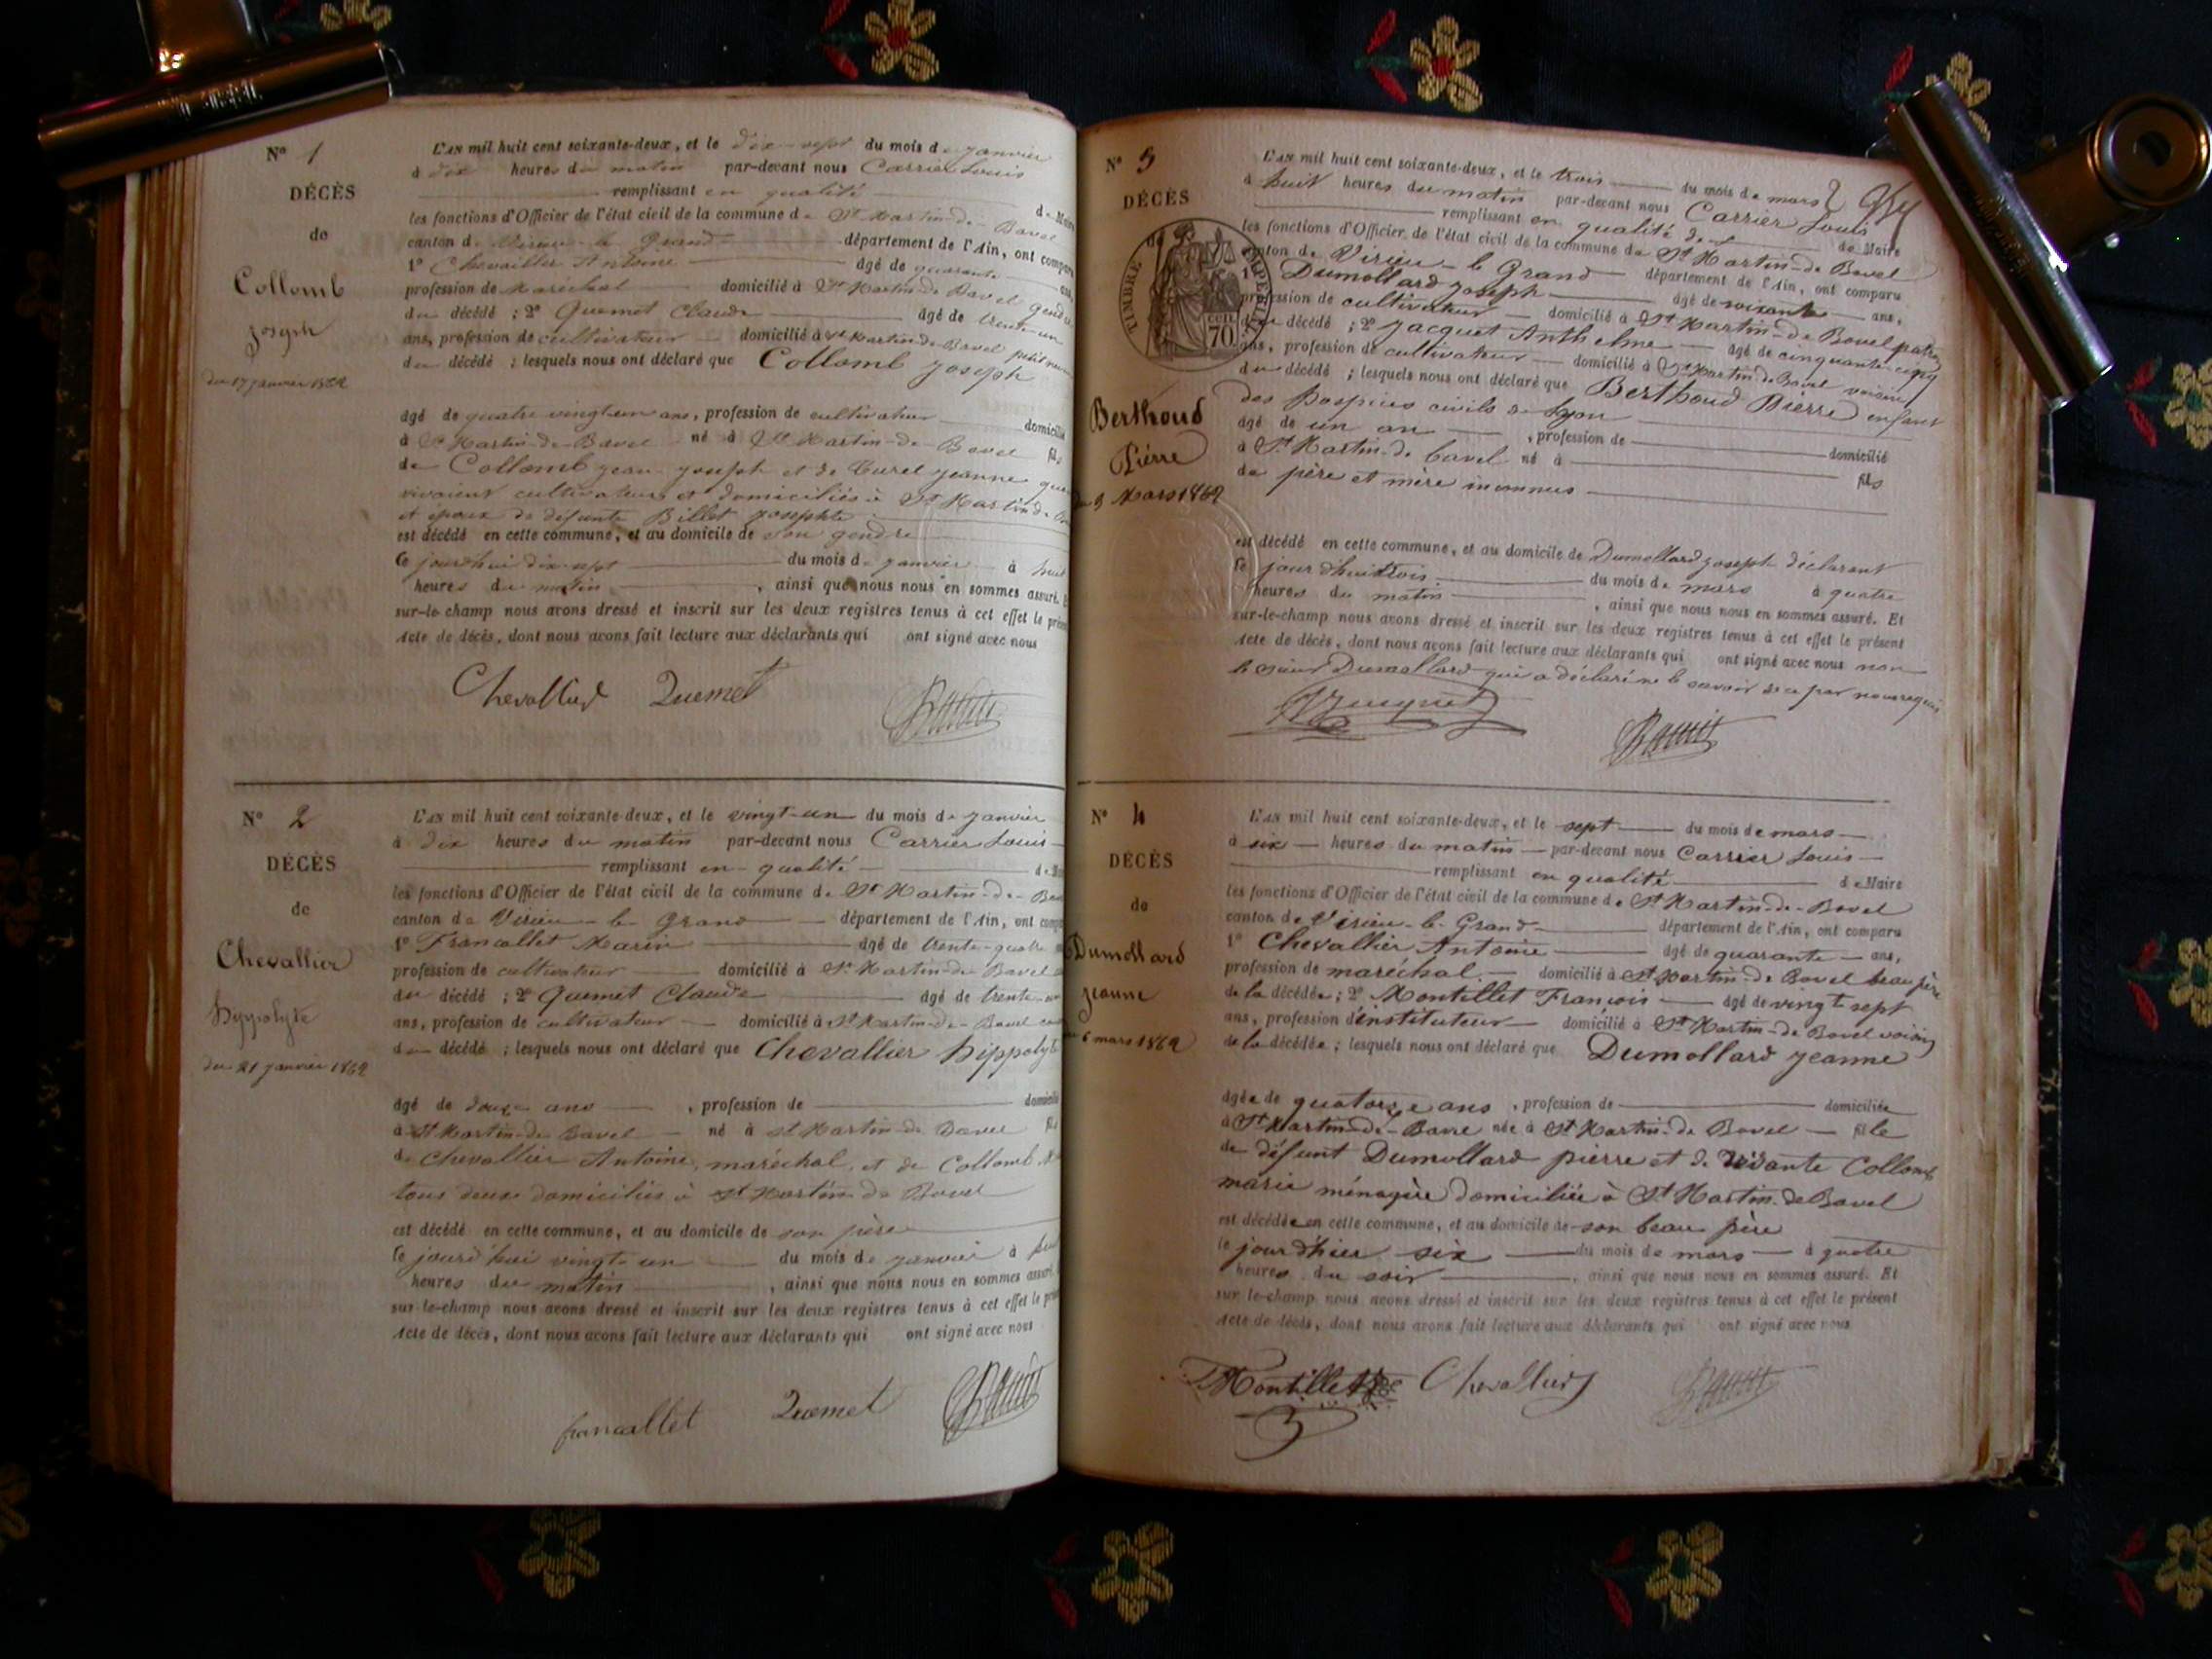 N° 1
DÉCÈS
de
Collomb
joseph
du 17 janvier 1862
L'AN mil huit cent soixante-deux, et le dix-sept du mois de janvier
à dix heures du matin par-devant nous Carrier Louis
remplissant en qualité de Maire
les fonctions d'Officier de l'état civil de la commune de St Martin-de-Bavel
canton de Virieu-le-Grand département de l'Ain, ont comparu
1° Chevallier Antoine âgé de quarante ans,
profession de maréchal domicilié à St Martin-de Bavel gendre
du décédé ; 2° Quemet Claude âgé de trente-un
ans, profession de cultivateur domicilié à St Martin-de-Bavel petit neveu
du décédé ; lesquels nous ont déclaré que Collomb joseph
âgé de quatre vingt un ans, profession de cultivateur domicilié
à St Martin-de-Bavel né à St Martin-de-Bavel fils
de Collomb jean-joseph et de Curel jeanne
vivaient cultivateurs et domiciliés à St Martin-de
et époux de défunte Billet josephte
est décédé en cette commune, et au domicile de son gendre
le jourd'hui dix-sept du mois de janvier à huit
heures du matin, ainsi que nous nous en sommes assuré. Et
sur-le-champ nous avons dressé et inscrit sur les deux registres tenus à cet effet le présent
Acte de décès, dont nous avons fait lecture aux déclarants qui ont signé avec nous
Chevallier Quemet
N° 2
DÉCÈS
de
Chevallier
hyppolyte
du 21 janvier 1862
L'AN mil huit cent soixante-deux, et le vingt-un du mois de janvier
à dix heures du matin par-devant nous Carrier Louis
remplissant en qualité de
les fonctions d'Officier de l'état civil de la commune de St Martin-de-
canton de Virieu-le-Grand département de l'Ain, ont
1° Francallet Marin âgé de trente-quatre
profession de cultivateur domicilié à St Martin-de Bavel
du décédé ; 2° Quemet Claude âgé de trente-un
ans, profession de cultivateur domicilié à St Martin-de-Bavel
du décédé ; lesquels nous ont déclaré que Chevallier hippolyte
âgé de douze ans, profession de domicilié
à St Martin-de Bavel né à St Martin-de Bavel fils
de Chevallier Antoine, maréchal, et de Collomb
tous deux domiciliés à St Martin-de Bavel
est décédé en cette commune, et au domicile de son père
le jourd'hui vingt-un du mois de janvier à
heures du matin, ainsi que nous nous en sommes assuré.
sur-le-champ nous avons dressé et inscrit sur les deux registres tenus à cet effet le
Acte de décès, dont nous avons fait lecture aux déclarants qui ont signé avec nous
francallet Quemet
N° 3
DÉCÈS
TIMBRE IMPÉRIAL
70
Berthoud
Pierre
du 3 Mars 1862
L'AN mil huit cent soixante-deux, et le trois du mois de mars
à huit heures du matin par-devant nous Carrier Louis
remplissant en qualité de de Maire
les fonctions d'Officier de l'état civil de la commune de St Martin-de Bavel
canton de Virieu-le Grand département de l'Ain, ont comparu
1° Dumollard joseph âgé de soixante ans,
profession de cultivateur domicilié à St Martin-de-Bavel patron
du décédé ; 2° jacquet Anthelme âgé de cinquante-cinq
ans, profession de cultivateur domicilié à St Martin-de Bavel voisin
du décédé ; lesquels nous ont déclaré que Berthoud Pierre enfant
des hospices civils de Lyon
âgé de un an, profession de domicilié
à St Martin-de bavel né à fils
de père et mère inconnus
est décédé en cette commune, et au domicile de Dumollard joseph déclarant
le jour d'hui trois du mois de mars à quatre
heures du matin, ainsi que nous nous en sommes assuré. Et
sur-le-champ nous avons dressé et inscrit sur les deux registres tenus à cet effet le présent
Acte de décès, dont nous avons fait lecture aux déclarants qui ont signé avec nous non
le sieur Dumollard qui a déclaré ne le savoir de ce par nous requis
N° 4
DÉCÈS
de
Dumollard
jeanne
6 mars 1862
L'AN mil huit cent soixante-deux, et le sept du mois de mars
à six heures du matin par-devant nous Carrier Louis
remplissant en qualité de Maire
les fonctions d'Officier de l'état civil de la commune de St Martin-de-Bavel
canton de Virieu-le-Grand département de l'Ain, ont comparu
1° Chevallier Antoine âgé de quarante ans,
profession de maréchal domicilié à St Martin-de Bavel beau père
de la décédée ; 2° Montillet François âgé de vingt sept
ans, profession d'instituteur domicilié à St Martin-de Bavel voisin
de la décédée ; lesquels nous ont déclaré que Dumollard jeanne
âgée de quatorze ans, profession de domiciliée
à St Martin-de-Bavel née à St Martin-de Bavel fille
de défunt Dumollard pierre et de vivante Collomb
marie ménagère domiciliée à St Martin-de Bavel
est décédée en cette commune, et au domicile de son beau père
le jour d'hier six du mois de mars à quatre
heures du soir, ainsi que nous nous en sommes assuré. Et
sur-le-champ nous avons dressé et inscrit sur les deux registres tenus à cet effet le présent
Acte de décès, dont nous avons fait lecture aux déclarants qui ont signé avec nous
Montillet Chevallier